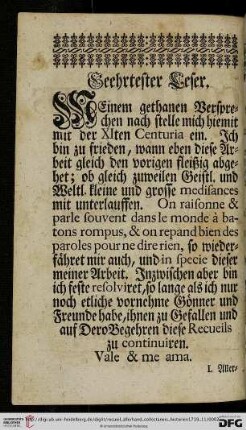 Geehrtester Leser.
MEinem gethanen Verspre-
chen nach stelle mich hiemit
mit der XIten Centuria ein. Ich
bin zu frieden, wann eben diese Ar-
beit gleich den vorigen fleißig abge-
het; ob gleich zuweilen Geistl. und
Weltl. kleine und grosse medisances
mit unterlauffen. On raisonne &
parle souvent dans le monde à ba-
tons rompus, & on repand bien des
paroles pour ne dire rien, so wieder-
fähret mir auch, und in specie dieser
meiner Arbeit. Inzwischen aber bin
ich feste resolviret, so lange als ich nur
noch etliche vornehme Gönner und
Freunde habe, ihnen zu Gefallen und
auf Dero Begehren diese Recueils
zu continuiren.
Vale & me ama.
I. Aller-
UNIVERSITÄTS-
BIBLIOTHEK
HEIDELBERG
DFG